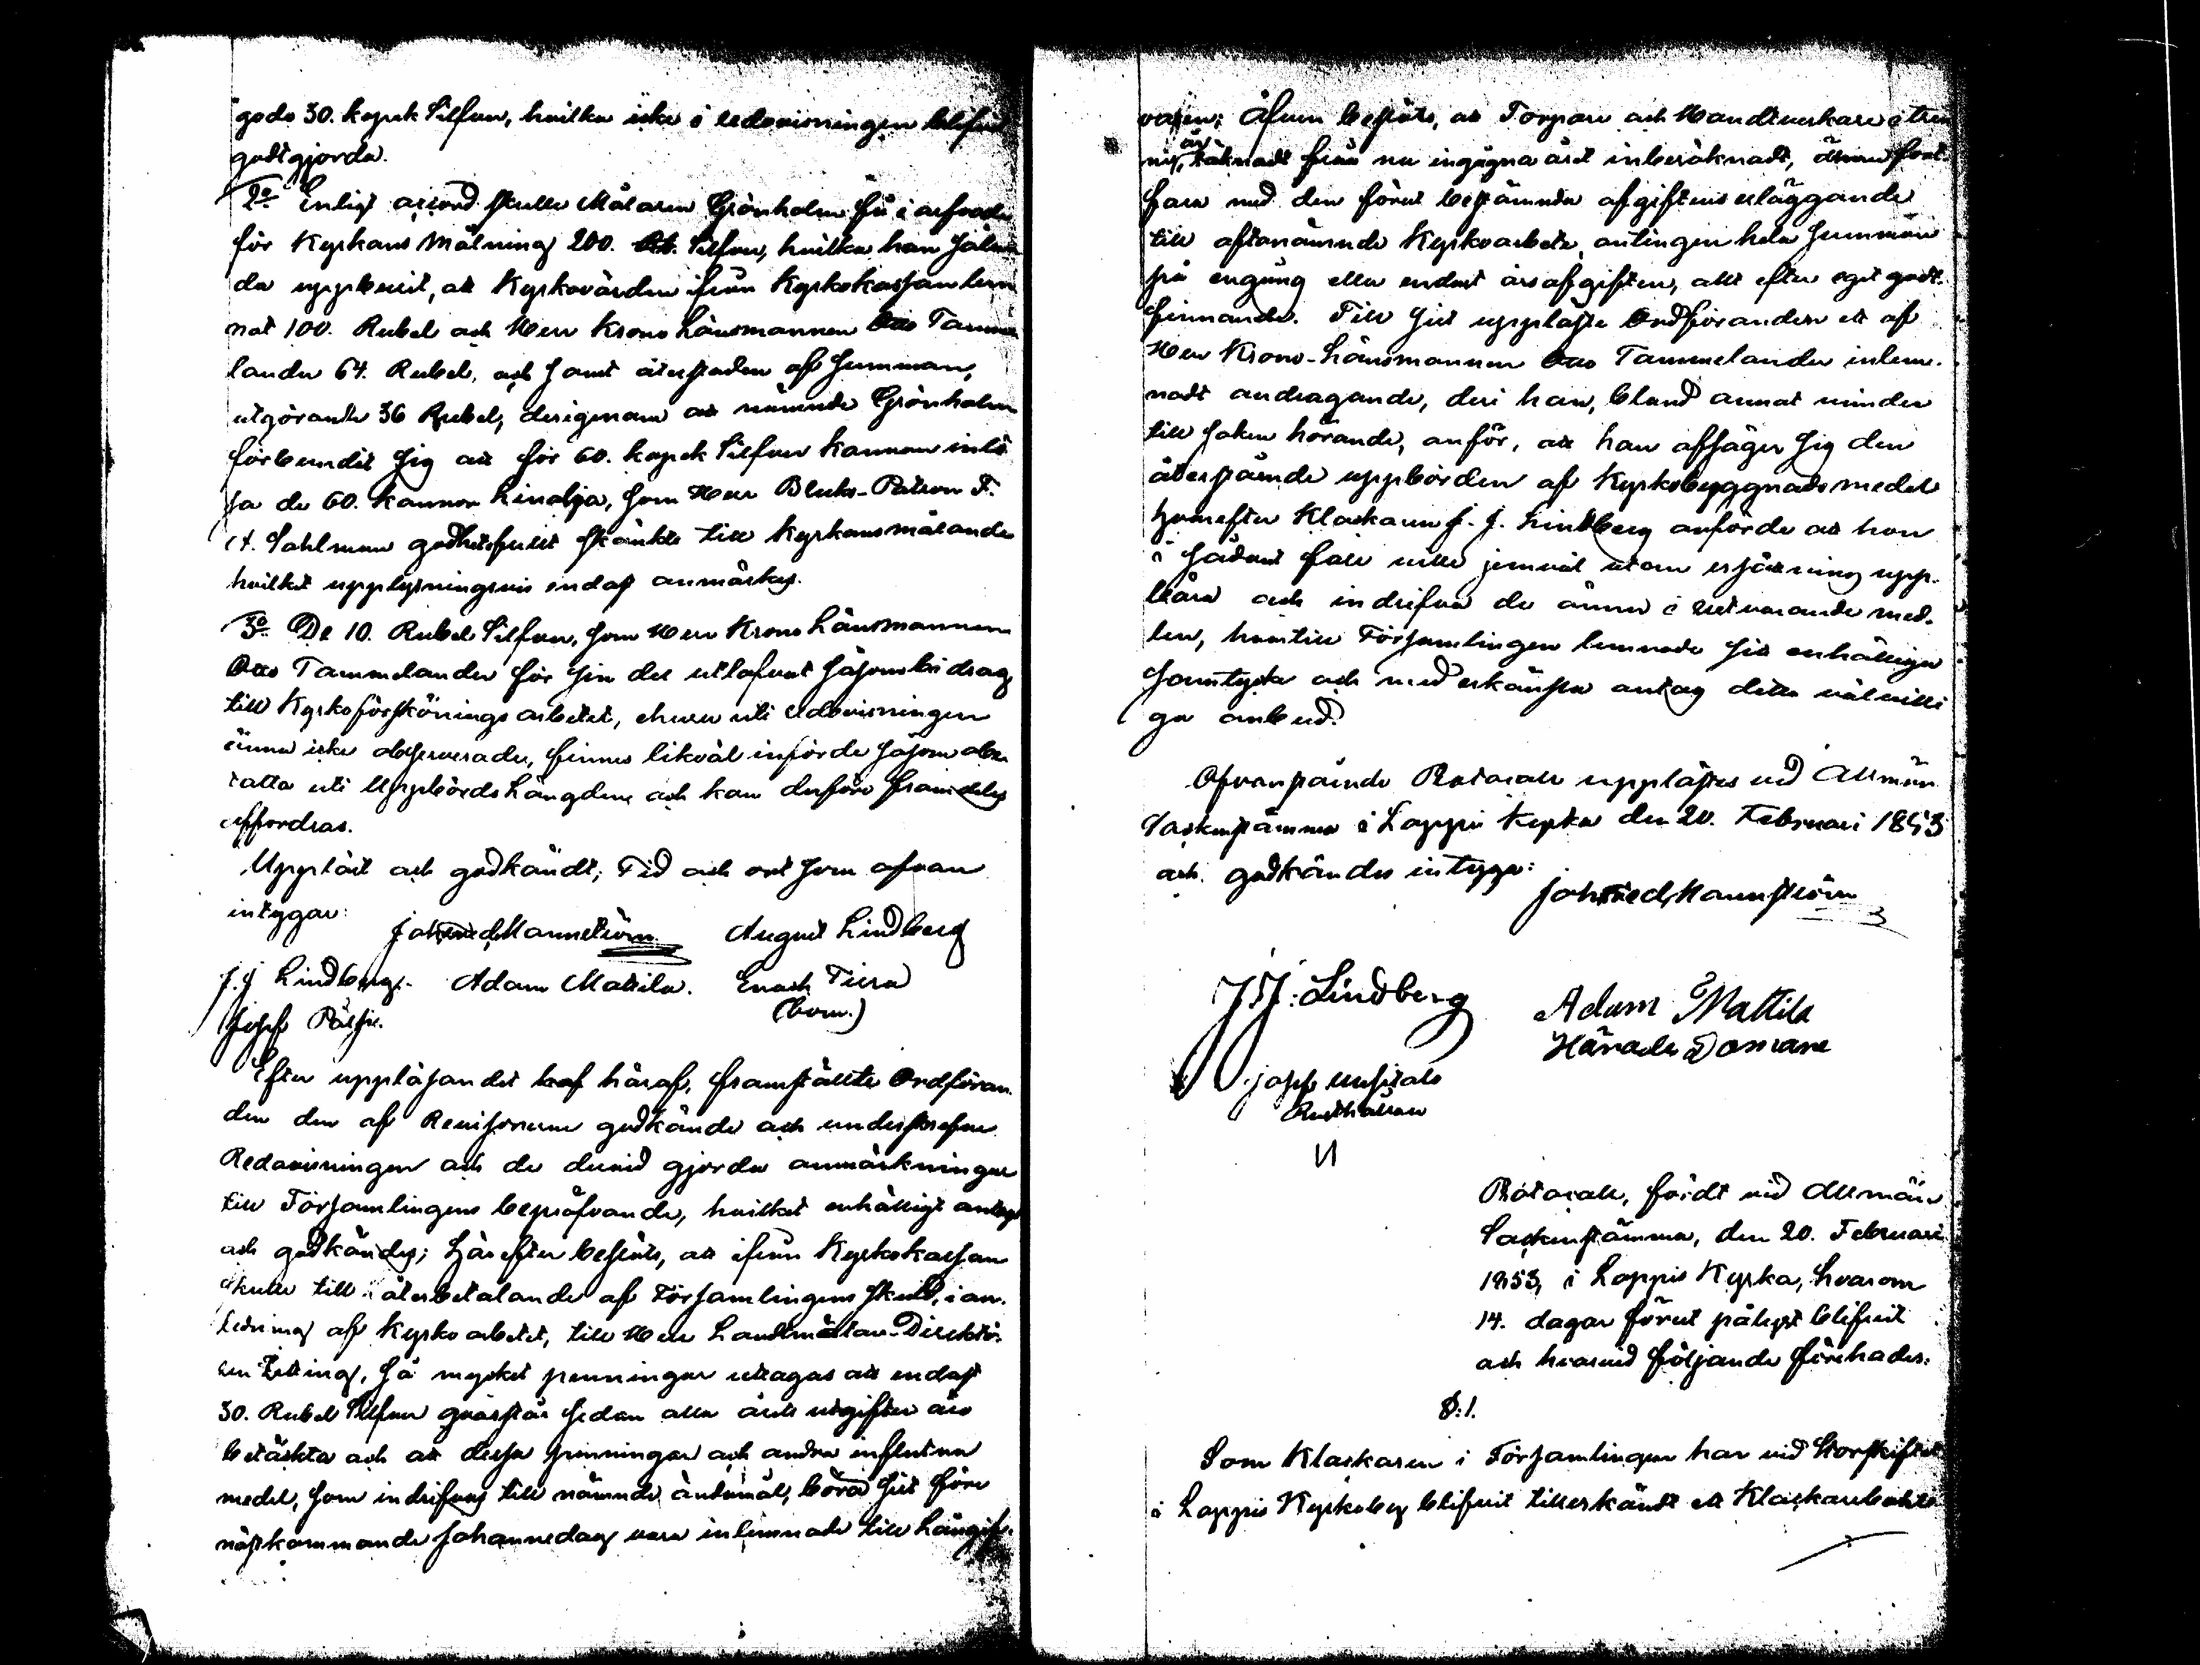 godo 30. kopek Silfver, hvilka icke i redovisningen blifvit
godtgjorda.
2o Enligt accord skulle Målaren Grönholm få i arfvode
för Kyrkans Målning 200. Silfver, hvilka han sålun
da uppburit, att Kyrkovärden ifrån Kyrkokassan lem
nat 100. Rubel och Herr Krono Länsmannen Otto Tamme
lander 64. Rubel, och samt återstoden af summan,
utgörande 36 Rubel, derigenom att nämnde Grönholm
förbundit sig att för 60. kopek Silfver kannan inlö
sa de 60. kannor Linolja, som Herr Bruks-Patron F.
A. Sahlman godhetsfullt skänkte till Kyrkans målande
hvilket upplysningsvis endast anmärkes.
3o De 10. Rubel Silfver, som Herr Krono Länsmannen
Otto Tammelander för sin del utlofvat såsom bidrag
till Kyrkoförsköningsarbetet, ehuru uti redovisningen
ännu icke observerade, finnes likväl införde såsom obe
talta uti Uppbördslängden och kan derföre framdeles
uffordras.
Uppläst och godkändt; Tid och ort som ofvan
intygar:
Joh Fred. Mannström August Lindberg
J. J Lindberg. Adam Mattila. Enoch Tiira
Josef Pätsi. (bom.)
Efter uppläsandet häraf, framställte Ordföran
den den af Revisorerne godkände och underskrefne
Redovisningen och de dervid gjorda anmärkningar
till Församlingens bepröfvande, hvilket enhälligt antogs
och godkändes; härefter beslöts, att ifrån Kyrkokassan
skulle till återbetalande af Församlingens skuld, i an
ledning af Kyrko arbetet, till Herr Landtmätare-Direktö
ren Zitting, så mycket penningar uttagas att endast
30. Rubel Silfver qvarstår sedan alla årets utgifter äro
betäckta och att dessa penningar och andra influtna
medel, som indrifvas till nämnde ändamål, böra sist före
nästkommande Johannedag vara inlemnade till Långif-
varen; Äfven beslöts, att Torpare och Handtverkare i tren
ne år, räknadt från nu ingågna året inberäknadt, fort
fara med den förut bestämda afgiftens erläggande
till oftanämnde Kyrkoarbete, antingen hela summan
på engång eller endast årsafgiften, allt efter eget godt
finnande. Till sist upplaste Ordföranden ett af
Herr Krono-Länsmannen Otto Tammelander inlem
nadt andragande, deri han, bland annat mindre
till saken hörande, anför, att han afsäger sig den
återstående uppbörden af Kyrkobyggnads medel
hvarefter Klockaren J. J. Lindberg anförde att han
i sådant fall ville jemväl utom ersättning upp
bära och indrifva de ännu i restvarande med
len, hvartill Församlingen lemnade sitt enhälliga
samtycke och med erkänsla antog detta välvilli
ga anbud.
Ofvanstående Protocoll upplästes vid Allmän
Sockenstämma i Loppis Kyrka den 20. Februari 1853
och godkändes intyga:
Joh Fred, Mannström
J J: Lindberg Adam Mattila
Härads Domare
Josef Uusitalo
Rusthållare
Protocoll, fördt vid Allmän
Sockenstämma, den 20. Februari
1853, i Loppis Kyrka, hvarom
14. dagar förut pålyst blifvit
och hvarvid följande förehades:
§: 1.
Som Klockaren i Församlingen har vid Storskiftet
i Loppis Kyrkoby blifvit tillerkändt ett Klockarebohls